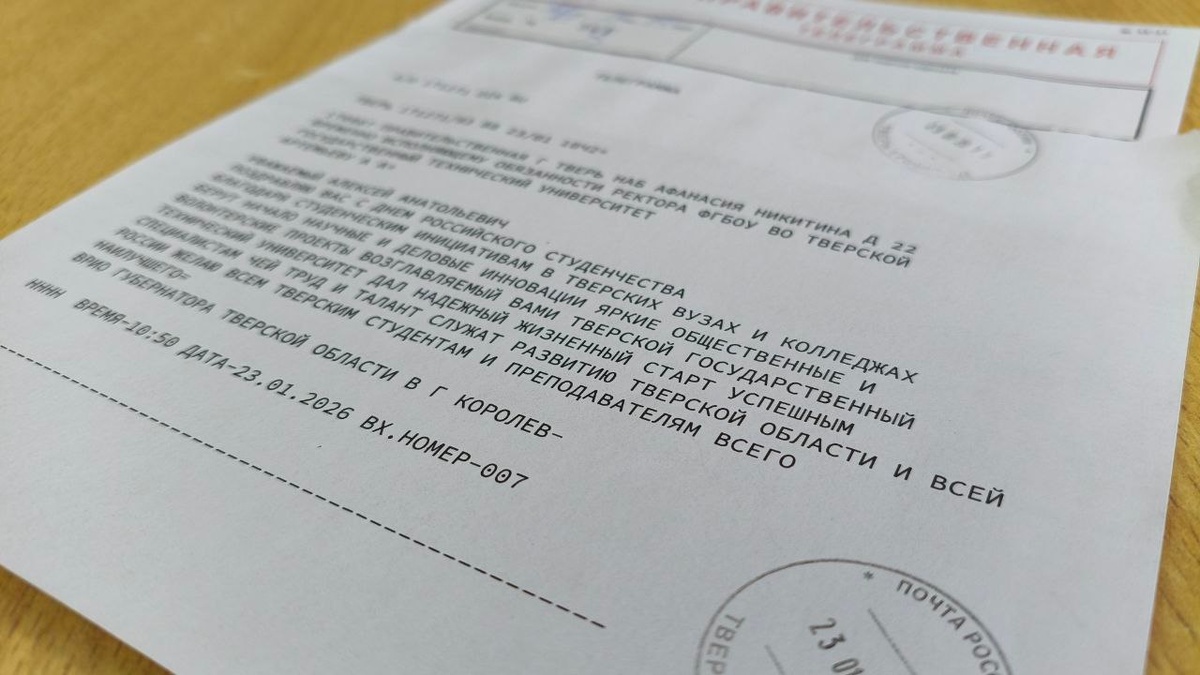 ПРАВИТЕЛЬСТВЕННАЯ
ТЕЛЕГРАММА
ТЕЛЕГРАММА
ТВЕРЬ 23/01
ПРАВИТЕЛЬСТВЕННАЯ Г ТВЕРЬ НАБ АФАНАСИЯ НИКИТИНА Д 22
ВРЕМЕННО ИСПОЛНЯЮЩЕМУ ОБЯЗАННОСТИ РЕКТОРА ФГБОУ ВО ТВЕРСКОЙ
ГОСУДАРСТВЕННЫЙ ТЕХНИЧЕСКИЙ УНИВЕРСИТЕТ
АРТЕМЬЕВУ А А=
УВАЖАЕМЫЙ АЛЕКСЕЙ АНАТОЛЬЕВИЧ
ПОЗДРАВЛЯЮ ВАС С ДНЕМ РОССИЙСКОГО СТУДЕНЧЕСТВА
БЛАГОДАРЯ СТУДЕНЧЕСКИМ ИНИЦИАТИВАМ В ТВЕРСКИХ ВУЗАХ И КОЛЛЕДЖАХ
БЕРУТ НАЧАЛО НАУЧНЫЕ И ДЕЛОВЫЕ ИННОВАЦИИ ЯРКИЕ ОБЩЕСТВЕННЫЕ И
ВОЛОНТЕРСКИЕ ПРОЕКТЫ ВОЗГЛАВЛЯЕМЫЙ ВАМИ ТВЕРСКОЙ ГОСУДАРСТВЕННЫЙ
ТЕХНИЧЕСКИЙ УНИВЕРСИТЕТ ДАЛ НАДЕЖНЫЙ ЖИЗНЕННЫЙ СТАРТ УСПЕШНЫМ
СПЕЦИАЛИСТАМ ЧЕЙ ТРУД И ТАЛАНТ СЛУЖАТ РАЗВИТИЮ ТВЕРСКОЙ ОБЛАСТИ И ВСЕЙ
РОССИИ ЖЕЛАЮ ВСЕМ ТВЕРСКИМ СТУДЕНТАМ И ПРЕПОДАВАТЕЛЯМ ВСЕГО
НАИЛУЧШЕГО=
ВРИО ГУБЕРНАТОРА ТВЕРСКОЙ ОБЛАСТИ В Г КОРОЛЕВ-
НННН ВРЕМЯ-10:50 ДАТА-23.01.2026 ВХ.НОМЕР-007
* ПОЧТА РОСС
ТВЕР
23 01